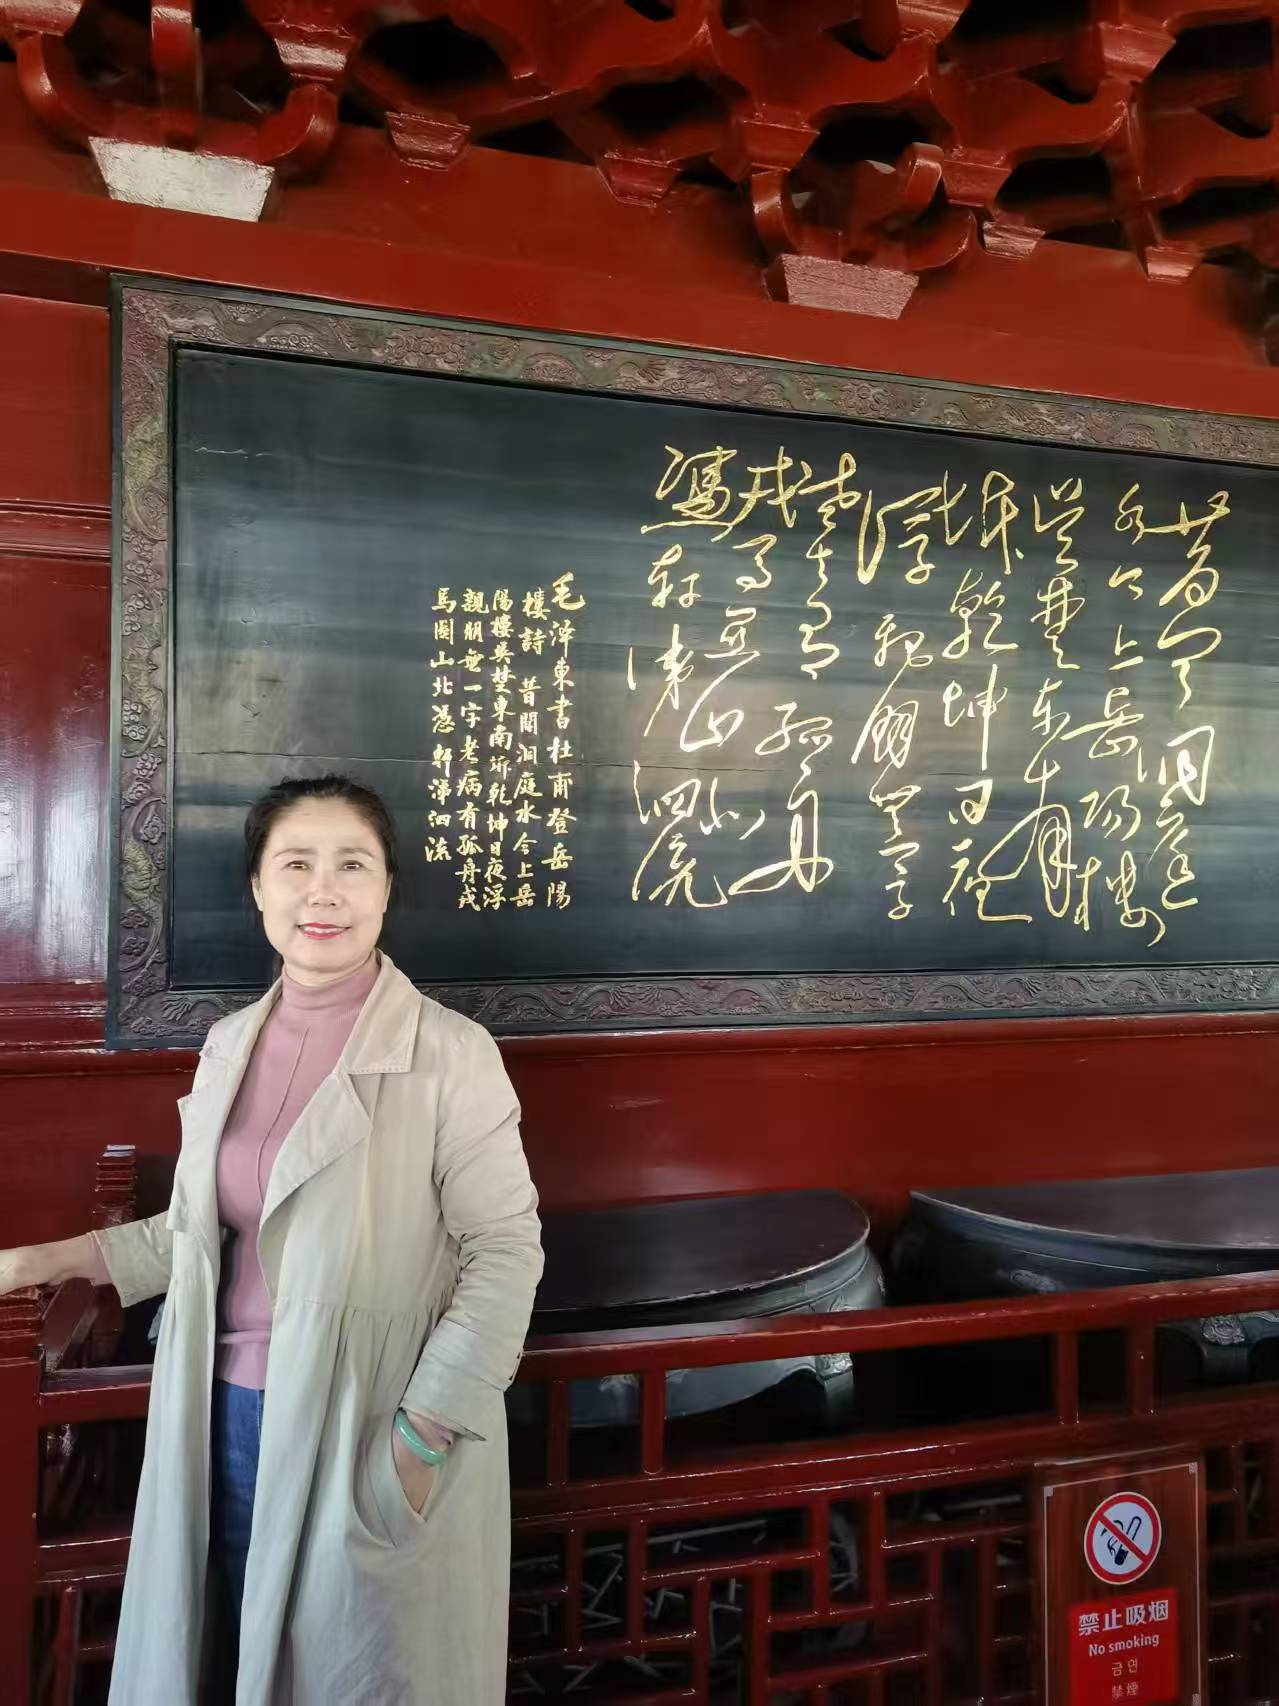 昔聞洞庭
水今上岳陽樓
吳楚東南
坼乾坤日夜
浮親朋無一字
老去有孤舟
戎馬關山北
憑軒涕泗流
毛澤東書杜甫登岳陽
樓詩 昔聞洞庭水今上岳
陽樓吳楚東南坼乾坤日夜浮
親朋無一字老病有孤舟戎
馬關山北憑軒涕泗流
禁止吸烟
No smoking
금연
禁煙